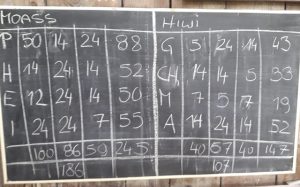 MOASS HIWI
P 50 14 24 88 G 5 24 14 43
H 14 24 14 52 CH, 14 14 5 33
E 12 24 14 50 M 7 5 7 19
I 24 24 7 55 A 14 14 24 52
100 86 59 245 40 57 147
186 107